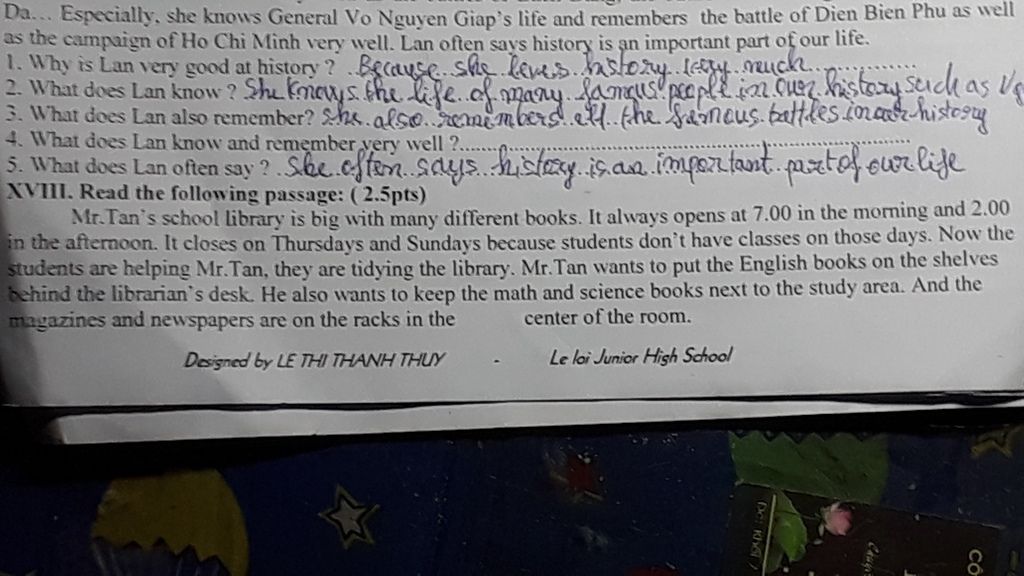 Da... Especially, she knows General Vo Nguyen Giap's life and remembers the battle of Dien Bien Phu as well
as the campaign of Ho Chi Minh very well. Lan often says history is an important part of our life.
1. Why is Lan very good at history ? Because she loves history very much
2. What does Lan know ? She knows the life of many famous people in our history such as
3. What does Lan also remember? She also remembers all the famous battles in our history
4. What does Lan know and remember very well ?
5. What does Lan often say ? She often says history is an important part of our life
XVIII. Read the following passage: ( 2.5pts)
Mr.Tan's school library is big with many different books. It always opens at 7.00 in the morning and 2.00
in the afternoon. It closes on Thursdays and Sundays because students don't have classes on those days. Now the
students are helping Mr.Tan, they are tidying the library. Mr.Tan wants to put the English books on the shelves
behind the librarian's desk. He also wants to keep the math and science books next to the study area. And the
magazines and newspapers are on the racks in the center of the room.
Designed by LE THI THANH THUY - Le loi Junior High School